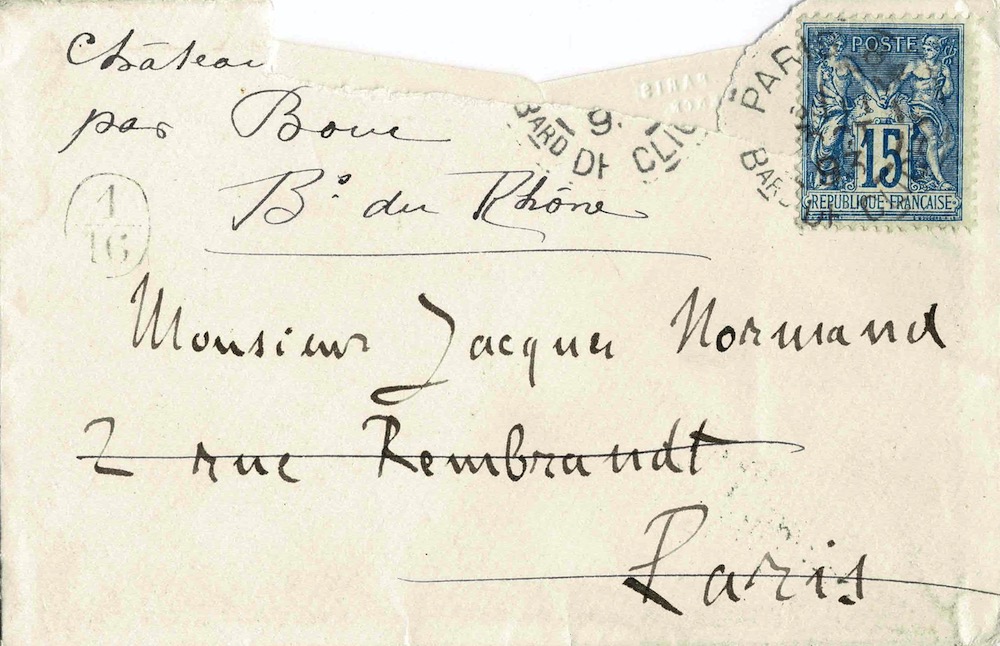 Château
par Bouc
B.s du Rhône
POSTE
15
REPUBLIQUE FRANÇAISE
PARIS
PARIS
BARD DE CLIC
1
16
Monsieur Jacques Normand
2 rue Rembrandt
Paris